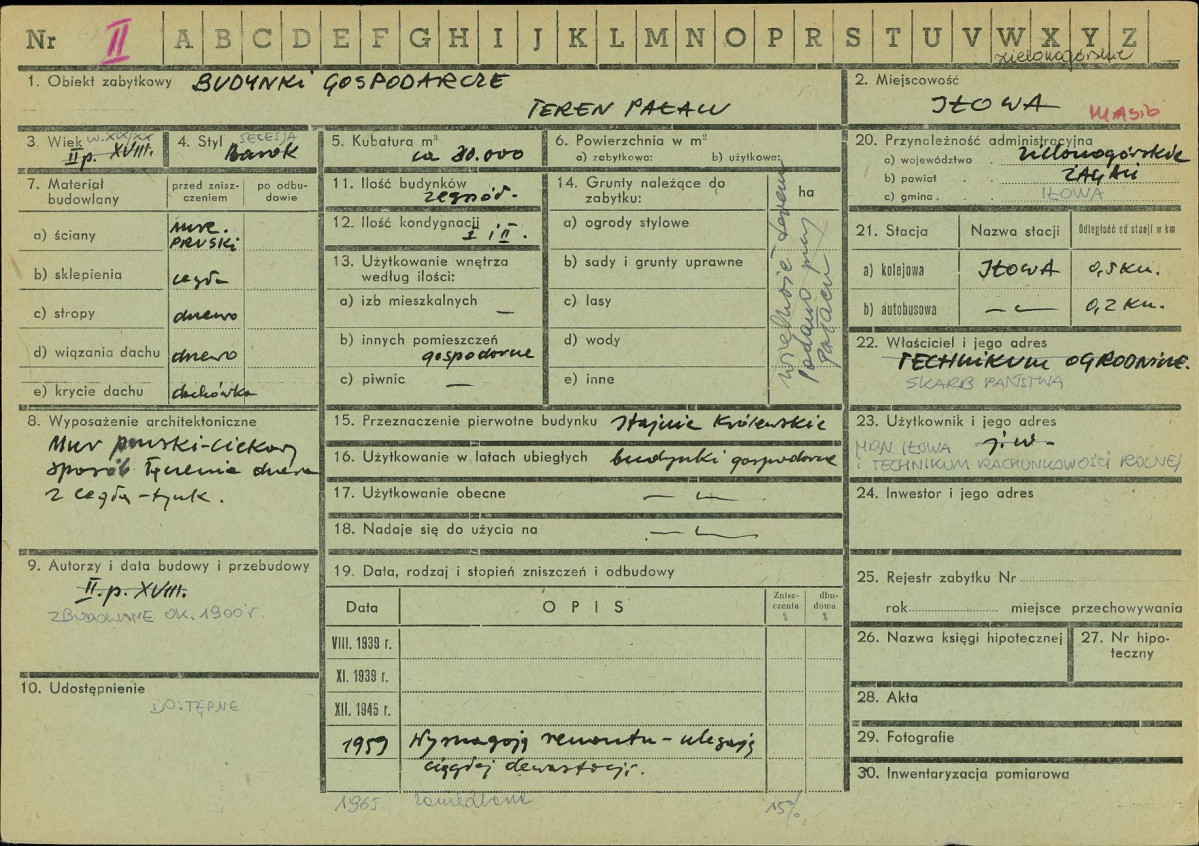 Nr II A B C D E F G H I J K L M N O P R S T U V W X Y Z
zielonogórskie
1. Obiekt zabytkowy BUDYNKI GOSPODARCZE
TEREN PAŁACU
2. Miejscowość
IŁOWA
3. Wiek w. XIX/XX
II p. XVIII.
4. Styl SECESJA
Barok
5. Kubatura m³
ca 30.000
6. Powierzchnia w m²
a) zabytkowa: b) użytkowa:
20. Przynależność administracyjna
a) województwo zielonogórskie
b) powiat ŻAGAŃ
c) gmina IŁOWA
7. Materiał budowlany
przed zniszczeniem
po odbudowie
a) ściany MUR. PRUSKI
b) sklepienia cegła
c) stropy drewo
d) wiązania dachu drewo
e) krycie dachu dachówka
11. Ilość budynków
zespół.
12. Ilość kondygnacji
I i II.
13. Użytkowanie wnętrza
według ilości:
a) izb mieszkalnych —
b) innych pomieszczeń
gospodarcze
c) piwnic —
14. Grunty należące do
zabytku:
ha
a) ogrody stylowe
b) sady i grunty uprawne
c) lasy
d) wody
e) inne
wielkość terenu
podano przy
pałacu
21. Stacja
Nazwa stacji
Odległość od stacji w km
a) kolejowa IŁOWA 0,5 km.
b) autobusowa —〃— 0,2 km.
22. Właściciel i jego adres
TECHNIKUM OGRODNICZE.
SKARB PAŃSTWA
8. Wyposażenie architektoniczne
Mur pruski-ciekawy
sposób łączenia drewna
z cegłą-tynk.
15. Przeznaczenie pierwotne budynku Stajnie Królewskie
16. Użytkowanie w latach ubiegłych budynki gospodarcze
17. Użytkowanie obecne —〃—
18. Nadaje się do użycia na —〃—
23. Użytkownik i jego adres
j.w.
MRN IŁOWA
i TECHNIKUM RACHUNKOWOŚCI ROLNEJ
24. Inwestor i jego adres
9. Autorzy i data budowy i przebudowy
II. p. XVIII.
ZBUDOWANE OK. 1900 r.
10. Udostępnienie
DOSTĘPNE
19. Data, rodzaj i stopień zniszczeń i odbudowy
Data
OPIS
Zniszczenia %
dbudowa %
VIII. 1939 r.
XI. 1939 r.
XII. 1945 r.
1959 Wymagają remontu - ulegają
ciągłej dewastacji.
1965 zaniedbane 15%
25. Rejestr zabytku Nr
rok miejsce przechowywania
26. Nazwa księgi hipotecznej
27. Nr hipoteczny
28. Akta
29. Fotografie
30. Inwentaryzacja pomiarowa